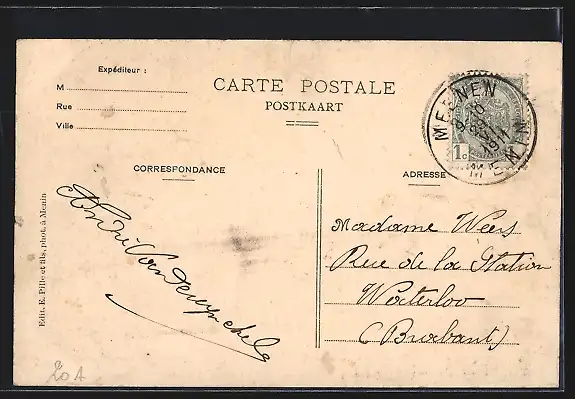 Expéditeur :
M
Rue
Ville
CARTE POSTALE
POSTKAART
MEENEN
1911
MENIN
1c
CORRESPONDANCE
ADRESSE
Edit. E. Pille et fils, phot. à Menin
André
Madame Weers
Rue de la Station
Waterloo
(Brabant)
20A